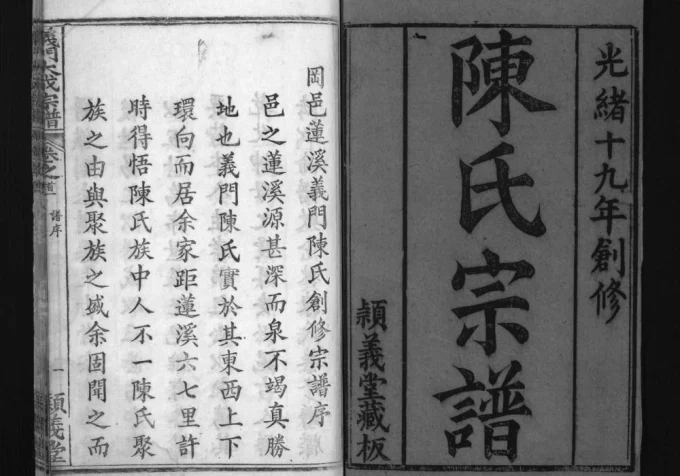 光緒十九年創修
陳氏宗譜
頴義堂藏板
岡邑蓮溪義門陳氏創修宗譜序
邑之蓮溪源甚深而泉不竭真勝
地也義門陳氏實於其東西上下
環向而居余家距蓮溪六七里許
時得悟陳氏族中人不一陳氏聚
族之由與聚族之盛余固聞之而
義門大成宗譜 卷之首 譜序 一 頴義堂